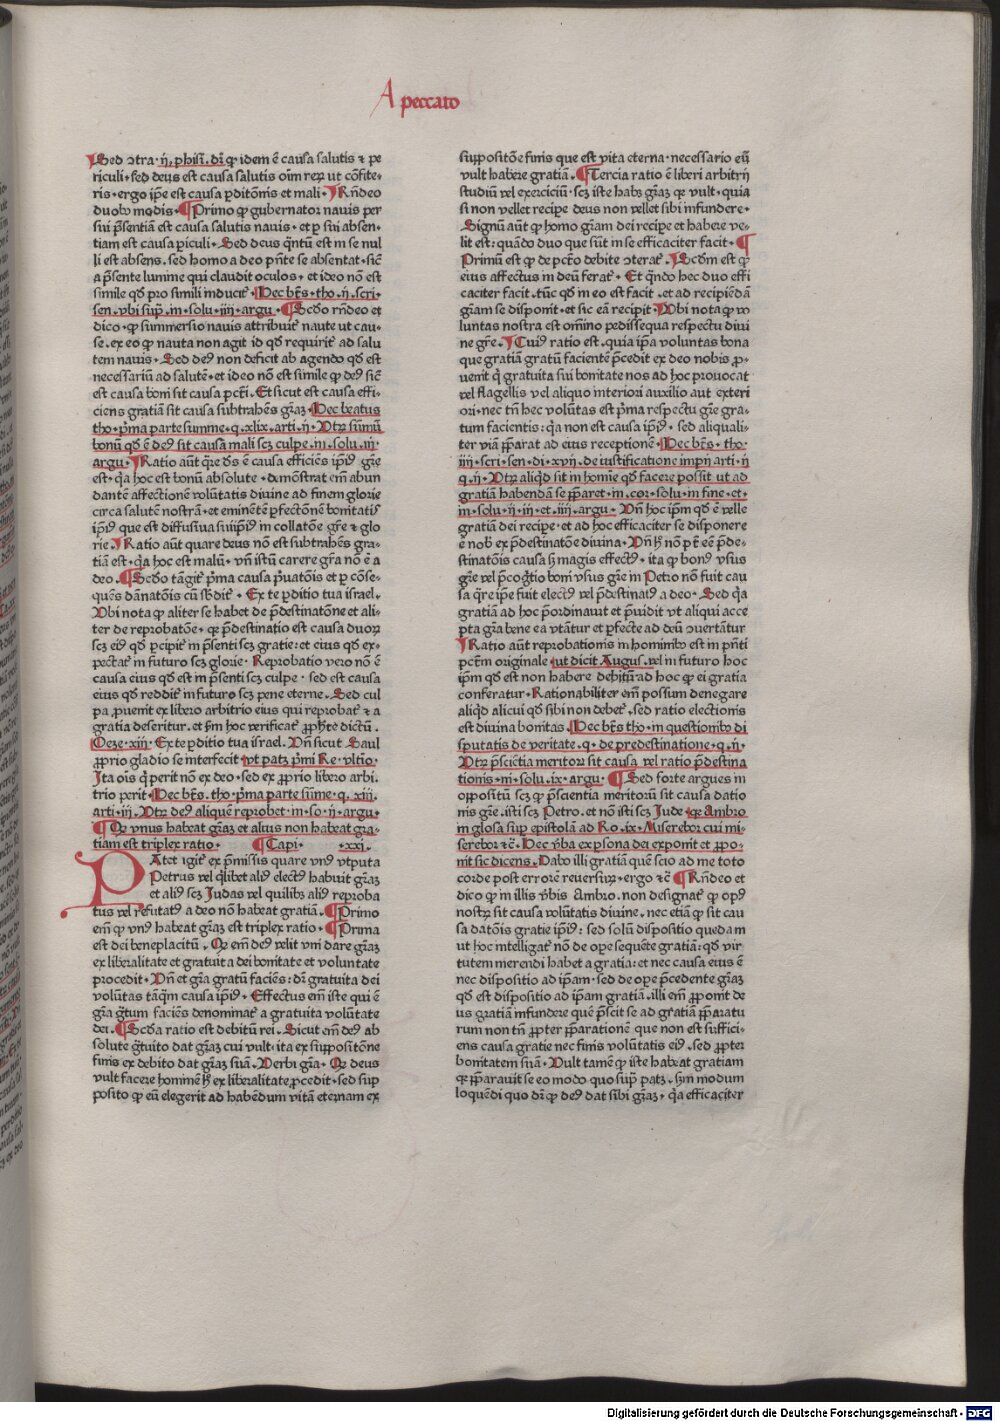 A peccato
Sed ↄtra · ij. phisi. dr̄ ꝙ idem ē causa salutis ⁊ pe
riculi · sed deus est causa salutis oīm rerū ut ↄfite-
ris · ergo ip̄e est causa ꝑditōnis et mali · Rn̄deo
duob9 modis · Primo ꝙ gubernator nauis per
sui pn̄tiā est causa salutis nauis · et ꝑ sui absen-
tiam est causa ꝑiculi · Sed deus q̄ntū est in se nul
li est absens. sed homo a deo pn̄te se absentat · sic̄
a pn̄te lumine qui claudit oculos · et ideo nō est
simile qd̄ pro simili inducit̄ · Hec bt̄s · tho · ij · scri-
sen · vbi sup̄ · in · solu · iiij · argu · Scd̄o rn̄deo et
dico · ꝙ summersio nauis attribuit̄ naute ut cau-
se · ex eo ꝙ nauta non agit id qd̄ requirit̄ ad salu
tem nauis · Sed de9 non deficit ab agendo qd̄ est
necessariū ad salutē · et ideo nō est simile ꝙ de9 sic̄
est causa boni sit causa pct̄i · Et sicut est causa effi-
ciens gratiā sit causa subtrahēs grāȝ · Hec beatus
tho · pͥma parte summe · q · xlix · arti · ij · Vtrū sūmū
bonū qd̄ ē de9 sit causa mali scȝ culpe · in · solu · iij ·
argu · Ratio aūt q̄re ds̄ ē causa efficiēs ip̄i9 gr̄e
est · qͣ hoc est bonū absolute · demōstrat em̄ abun
dantē affectionē volūtatis diuine ad finem glorie
circa salutē nostrā · et eminētē ꝑfectōnē bonitatis
ip̄i9 que est diffusiua suiip̄i9 in collatōe gr̄e ⁊ glo
rie · Ratio aūt quare deus nō est subtrahēs gra-
tiā est · qͣ hoc est malū · vn̄ istū carere grā nō ē a
deo · Scd̄o tāgit̄ pͥma causa pͥuatōis et ꝑ cōse-
quēs dānatōis cū sbdit̄ · Ex te ꝑditio tua israel ·
Vbi nota ꝙ aliter se habet de pͣdestinatōne et ali-
ter de reprobatōe · qꝛ pͣdestinatio est causa duorū
scȝ ei9 qd̄ ꝑcipit̄ in pn̄ti scȝ gratie · et eius qd̄ ex-
pectat̄ in futuro scȝ glorie · Reprobatio vero nō ē
causa eius qd̄ est in pn̄ti scȝ culpe · sed est causa
eius qd̄ reddit̄ in futuro scȝ pene eterne · Sed cul
pa ꝓuenit ex libero arbitrio eius qui reprobat̄ ⁊ a
gratia deseritur · et sm̄ hoc verificat̄ ꝓphete dictū ·
Ozee · xiij · Ex te ꝑditio tua israel · Vn̄ sicut Saul
ꝓprio gladio se interfecit · vt patȝ pͥmi Re · vltio ·
Ita oīs qͥ perit nō ex deo · sed ex ꝓprio libero arbi.
trio perit · Hec bt̄s · tho · pͥma parte sūme · q · xiij ·
arti · iij · Vtrū de9 aliquē reprobet · in · so · ij · argu ·
Qꝛ vnus habeat grāȝ et alius non habeat gra-
tiam est triplex ratio · Capi · · xxi ·
PAtet igit̄ ex pͣmissis quare vn9 vtputa
Petrus vel qͥlibet ali9 elect9 habuit grāȝ
et ali9 scȝ Judas vel quilibȝ ali9 reproba
tus vel refutat9 a deo nō habeat gratiā · Primo
em̄ ꝙ vn9 habeat grāȝ est triplex ratio · Prima
est dei beneplacitū · Qꝛ em̄ de9 velit vni dare grāȝ
ex liberalitate et gratuita dei bonitate et voluntate
procedit · Vn̄ et grā gratū faciēs: dr̄ gratuita dei
volūtas tāqͣm causa ip̄i9 · Effectus em̄ iste qui ē
grā gͣtum faciēs denominat̄ a gratuita volūtate
dei · Scd̄a ratio est debitū rei · Sicut em̄ de9 ab
solute gͣtuito dat grāȝ cui vult · ita ex suppositōne
finis ex debito dat grāȝ suā · Verbi grā · Qꝛ deus
vult facere hominē hͨ ex liberalitate ꝓcedit · sed sup
posito ꝙ eū elegerit ad habendum vitā eternam ex
suppositōe finis que est vita eterna · necessario eū
vult habere gratiā · Tercia ratio ē liberi arbitrij
studiū vel exerciciū · scȝ iste habȝ grāȝ qꝛ vult · quia
si non vellet recipe deus non vellet sibi infundere ·
Signū aūt ꝙ homo grām dei recipe et habere ve-
lit est: quādo duo que sūt in se efficaciter facit ·
Primū est ꝙ de pctō debite ↄterat̄ · Scd̄m est ꝙ
eius affectus in deū ferat̄ · Et qn̄do hec duo effi
caciter facit · tūc qd̄ in eo est facit · et ad recipiēdā
grām se disponit · et sic eā recipit · Vbi nota ꝙ vo
luntas nostra est om̄ino pedissequa respectu diui
ne gr̄e · Cui9 ratio est · quia ip̄a voluntas bona
que gratiā gratū faciente pͣcedit ex deo nobis ꝓ-
uenit qͥ gratuita sui bonitate nos ad hoc prouocat
vel flagellis vel aliquo interiori auxilio aut exteri
ori · nec tn̄ hec volūtas est pͥma respectu gr̄e gra-
tum facientis: qͣ non est causa ip̄i9 · sed aliquali-
ter viā pͣparat ad eius receptionē · Hec bt̄s · tho ·
iiij · scri · sen · di · xvij · de iustificatione impij arti · ij
q · ij · Vtrū aliqd̄ sit in homīe qd̄ facere possit ut ad
gratiā habendā se pͣparet · in · cor · solu · in fine · et ·
in · solu · ij · iij · et · iiij · argu · Vn̄ hoc ip̄m qd̄ ē velle
gratiā dei recipe · et ad hoc efficaciter se disponere
ē nob̄ ex pͣdestinatōe diuina · Vn̄ hͨ nō pt̄ eē pͣde-
stinatōis causa sȝ magis effect9 · ita ꝙ bon9 vsus
gr̄e vel pͣcogͥtio boni vsus gr̄e in Petro nō fuit cau
sa q̄re ip̄e fuit elect9 vel pͣdestinat9 a deo · Sed qͣ
gratiā ad hoc pͣordinauit et pͣuidit vt aliqui acce
pta grā bene ea vtātur et ꝑfecte ad deū ↄuertātur
Ratio aūt reprobationis in hominib9 est in pn̄ti
pctm̄ originale · ut dicit Augus. vel in futuro hoc
ip̄m qd̄ est non habere debitū ad hoc ꝙ ei gratia
conferatur · Rationabiliter em̄ possum denegare
aliqd̄ alicui qd̄ sibi non debet̄ · sed ratio electionis
est diuina bonitas · Hec bt̄s tho · in questionib9 di
sputatis de veritate · q · de predestinatione · q · ij ·
Vtrū pͣscientia meritorū sit causa vel ratio pͣdestina
tionis · in · solu · ix · argu · Sed forte argues in
oppositū scȝ ꝙ pͣscientia meritorū sit causa datio
nis gr̄e · isti scȝ Petro · et nō isti scȝ Jude · qꝛ Ambro
in glosa sup epistolā ad Ro · ix · Miserebor cui mi-
serebor ⁊c̄ · Hec v̄ba ex ꝑsona dei exponit et ꝓpo-
nit sic dicens · Dabo illi gratiā quē scio ad me toto
corde post errorē reuersur9 · ergo ⁊c̄ · Rn̄deo et
dico ꝙ in illis v̄bis Ambro. non designat̄ ꝙ op9
nostrū sit causa volūtatis diuine · nec etiā ꝙ sit cau
sa datōis gratie ip̄i9: sed solū dispositio quedam
ut hoc intelligat̄ nō de ope sequēte gratiā: qd̄ vir
tutem merendi habet a gratia: et nec causa eius ē
nec dispositio ad ip̄am · sed de ope pͣcedente grāȝ
qd̄ est dispositio ad ip̄am gratiā · illi em̄ ꝓponit de
us gratiā infundere quē pͣscit se ad gratiā pͣparatu
rum non tn̄ ꝓpter pͣparationē que non est suffici-
ens causa gratie nec finis volūtatis ei9 · sed ꝓpter
bonitatem suā · Vult tamē ꝙ iste habeat gratiam
qꝛ pͣparauit se eo modo quo sup̄ patȝ · sm̄ modum
loquēdi quo dr̄ ꝙ de9 dat sibi grāȝ · qͣ efficaciter
Digitalisierung gefördert durch die Deutsche Forschungsgemeinschaft - DFG